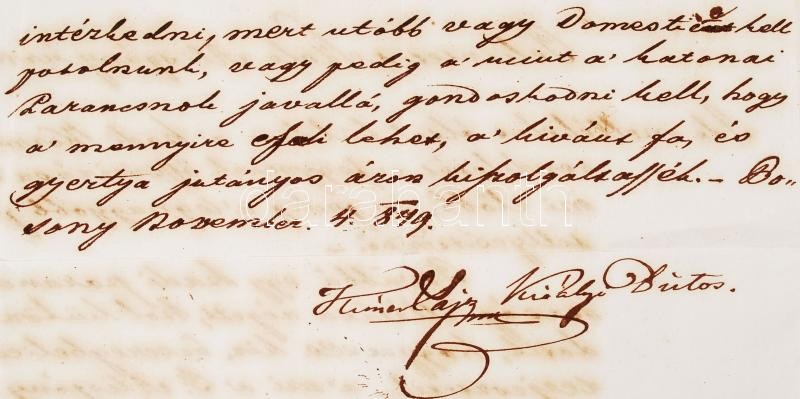 intézkedni, mert utóbb vagy Domesticus kell
potolnunk, vagy pedig a' mint a' katonai
Parancsnok javallá, gondoskodni kell, hogy
a' mennyire csak lehet, a' kivánt fa, és
gyertya jutányos áron kiszolgáltassék. – Po-
sony November. 4. 849.
Király Biztos.
darabanth